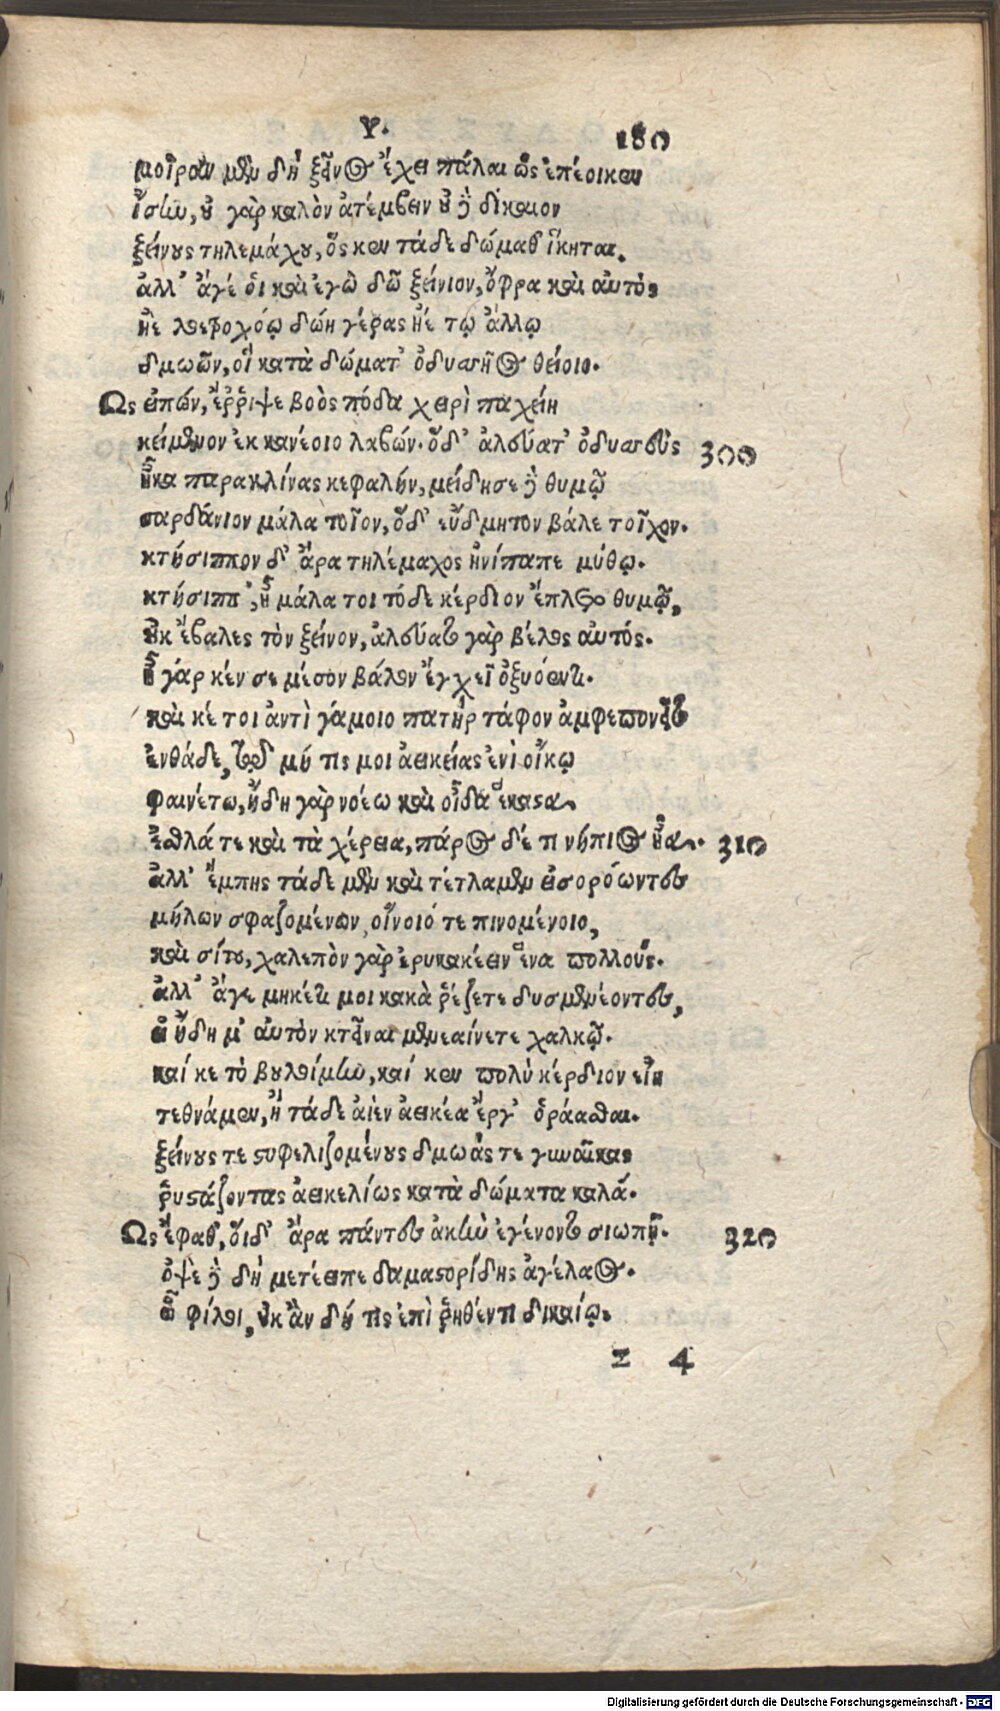 Υ. 180
μοῖραν μὲν δὴ ξεῖνος ἔχει πάλαι ὡς ἐπέοικεν
ἴσην, οὐ γὰρ καλὸν ἀτέμβειν οὐδὲ δίκαιον
ξείνους τηλεμάχου, ὅς κεν τάδε δώμαθ' ἵκηται.
ἀλλ' ἄγέ οἱ καὶ ἐγὼ δῶ ξείνιον, ὄφρα καὶ αὐτὸς
ἠὲ λοεφοχόῳ δώῃ γέρας ἠέ τῳ ἄλλῳ
δμωῶν, οἳ κατὰ δώματ' ὀδυσσῆος θείοιο.
Ως εἰπών, ἔῤῥιψε βοὸς πόδα χειρὶ παχείῃ
κείμενον ἐκ κανέοιο λαβών. ὅδ' ἀλεύατ' ὀδυσσεὺς 300
ἦκα παρακλίνας κεφαλήν, μείδησε δὲ θυμῷ
σαρδάνιον μάλα τοῖον, ὅδ' εὔδμητον βάλε τοῖχον.
κτήσιππον δ' ἄρα τηλέμαχος ἠνίπαπε μύθῳ.
κτήσιππ', ἦ μάλα τοι τόδε κέρδιον ἔπλετο θυμῷ,
οὐκ ἔβαλες τὸν ξεῖνον, ἀλεύατο γὰρ βέλος αὐτός.
ἦ γάρ κέν σε μέσον βάλον ἔγχεϊ ὀξυόεντι.
καὶ κέ τοι ἀντὶ γάμοιο πατὴρ τάφον ἀμφεπονεῖτο
ἐνθάδε, τῷ μή τις μοι ἀεικείας ἐνὶ οἴκῳ
φαινέτω, ἤδη γὰρ νοέω καὶ οἶδα ἕκαστα.
ἐσθλά τε καὶ τὰ χέρεια, πάρος δέ τι νήπιος ἦα. 310
ἀλλ' ἔμπης τάδε μὲν καὶ τέτλαμεν εἰσορόωντες
μήλων σφαζομένων, οἴνοιό τε πινομένοιο,
καὶ σίτου, χαλεπὸν γὰρ ἐρυκακέειν ἕνα πολλούς.
ἀλλ' ἄγε μηκέτι μοι κακὰ ῥέζετε δυσμενέοντες,
εἰ ἤδη μ' αὐτὸν κτεῖναι μενεαίνετε χαλκῷ.
καί κε τὸ βουλοίμην, καί κεν πολὺ κέρδιον εἴη
τεθνάμεν, ἢ τάδε αἰὲν ἀεικέα ἔργ' ὁράασθαι.
ξείνους τε στυφελιζομένους δμωάς τε γυναῖκας
ῥυστάζοντας ἀεικελίως κατὰ δώματα καλά.
Ως ἔφαθ', οἵδ' ἄρα πάντες ἀκὴν ἐγένοντο σιωπῇ. 320
ὀψὲ δὲ δὴ μετέειπε δαμαστορίδης ἀγέλαος.
ὦ φίλοι, οὐκ ἂν δή τις ἐπὶ ῥηθέντι δικαίῳ.
z 4
Digitalisierung gefördert durch die Deutsche Forschungsgemeinschaft - DFG